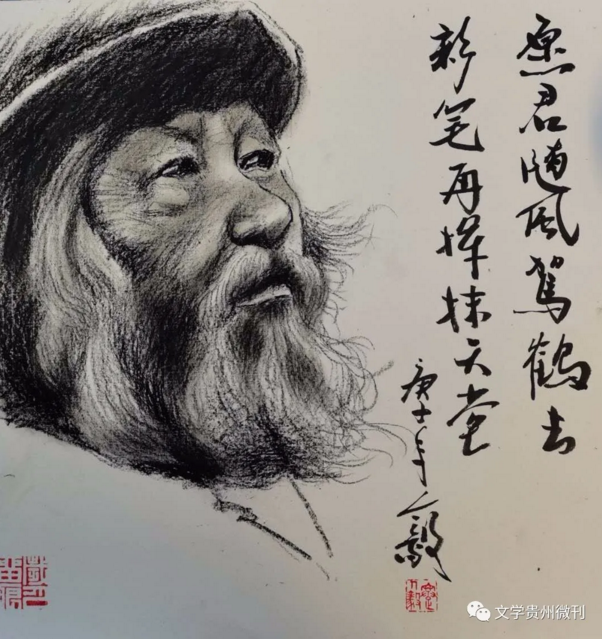 愿君随风驾鹤去
彩笔再挥抹天堂
庚子年 毅
文学贵州微刊